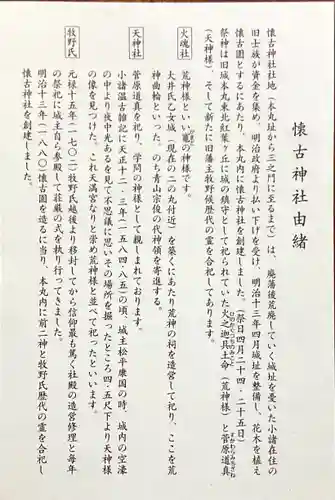 懐古神社由緒
懐古神社社地（本丸址から三之門に至るまで）は、廃藩後荒廃していく城址を憂いた小諸在住の
旧士族が資金を集め、明治政府より払い下げを受け、明治十三年四月城址を整備し、花木を植え
懐古園とするにあたり、本丸内に懐古神社を創建しました。（祭日四月二十四・二十五日）
祭神は旧城本丸東北紅葉ヶ丘に城の鎮守として祀られていた火之迦具土命（荒神様）と菅原道真
（天神様）、そして新たに旧藩主牧野候歴代の霊を合祀してあります。
火魂社
荒神様といい竈の神様です。
大井氏乙女城（現在の二の丸付近）を築くにあたり荒神の祠を造営して祀り、ここを荒
神曲輪といった。のち青山宗俊の代神領を寄進する。
天神社
菅原道真を祀り、学問の神様として親しまれております。
小諸温古雑記に天正十二、三年（一五八四・八五）の頃、城主松平康国の時、城内の空濠
の中より夜中光あるを見て不思議に思いその場所を掘ったところ四・五尺下より天神様
の像を見つけた。これ天満宮なりと崇め荒神様と並べて祀ったといいます。
牧野氏
元禄十五年（一七〇二）牧野氏越後より移封してから信仰最も篤く社殿の造営修理と毎年
の祭祀に城主自ら参殿して荘厳の式を執り行ってきました。
明治十三年（一八八〇）懐古園を造るに当り、本丸内に前二神と牧野氏歴代の霊を合祀し
懐古神社を創建しました。